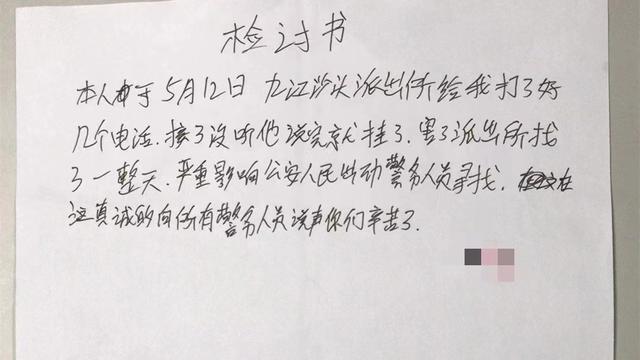 检讨书
本人于5月12日 九江沙头派出所给我打了好
几个电话.接了没听他说完就挂了.害了派出所找
了一整天.严重影响公安人民出动警务人员寻找. 在
这真诚的向所有警务人员说声你们辛苦了.